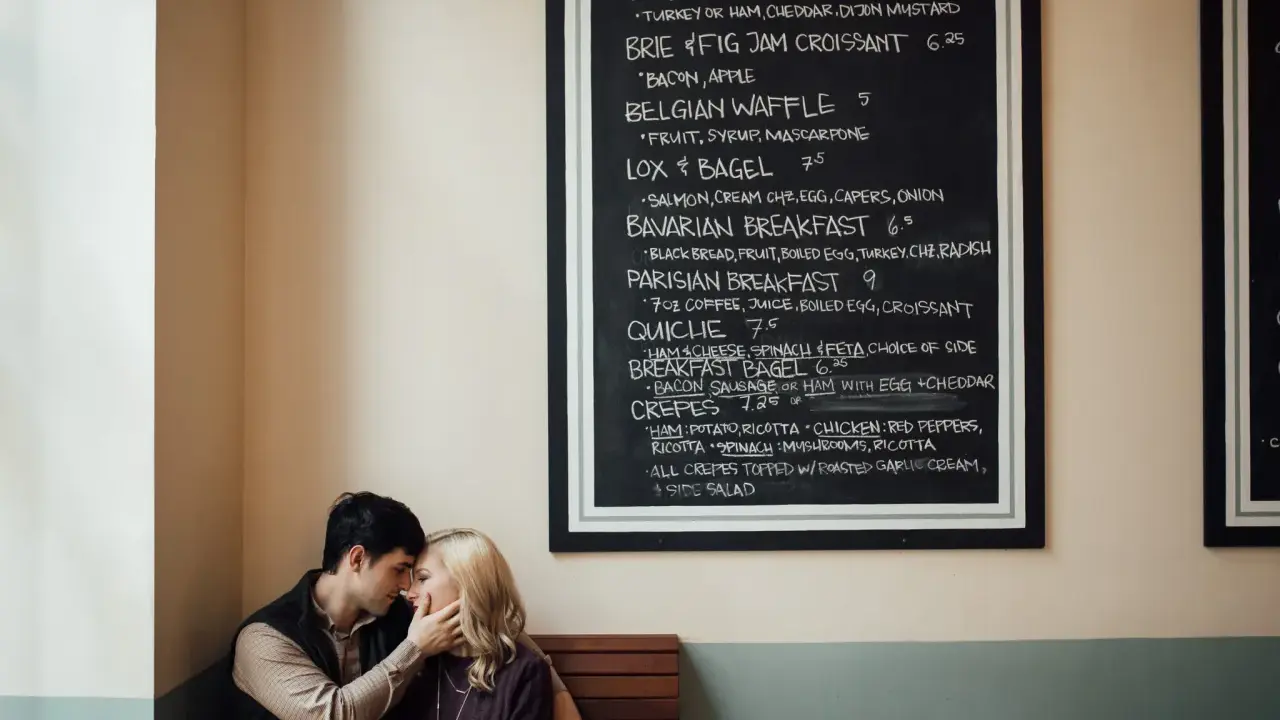 • TURKEY OR HAM, CHEDDAR, DIJON MUSTARD
BRIE & FIG JAM CROISSANT 6.25
• BACON, APPLE
BELGIAN WAFFLE 5
• FRUIT, SYRUP, MASCARPONE
LOX & BAGEL 7.5
• SALMON, CREAM CHZ, EGG, CAPERS, ONION
BAVARIAN BREAKFAST 6.5
• BLACK BREAD, FRUIT, BOILED EGG, TURKEY, CHZ, RADISH
PARISIAN BREAKFAST 9
• 7OZ COFFEE, JUICE, BOILED EGG, CROISSANT
QUICHE 7.5
• HAM & CHEESE, SPINACH & FETA, CHOICE OF SIDE
BREAKFAST BAGEL 6.25
• BACON, SAUSAGE OR HAM WITH EGG + CHEDDAR
CREPES 7.25 OR
• HAM: POTATO, RICOTTA • CHICKEN: RED PEPPERS,
RICOTTA • SPINACH: MUSHROOMS, RICOTTA
• ALL CREPES TOPPED W/ ROASTED GARLIC CREAM,
& SIDE SALAD